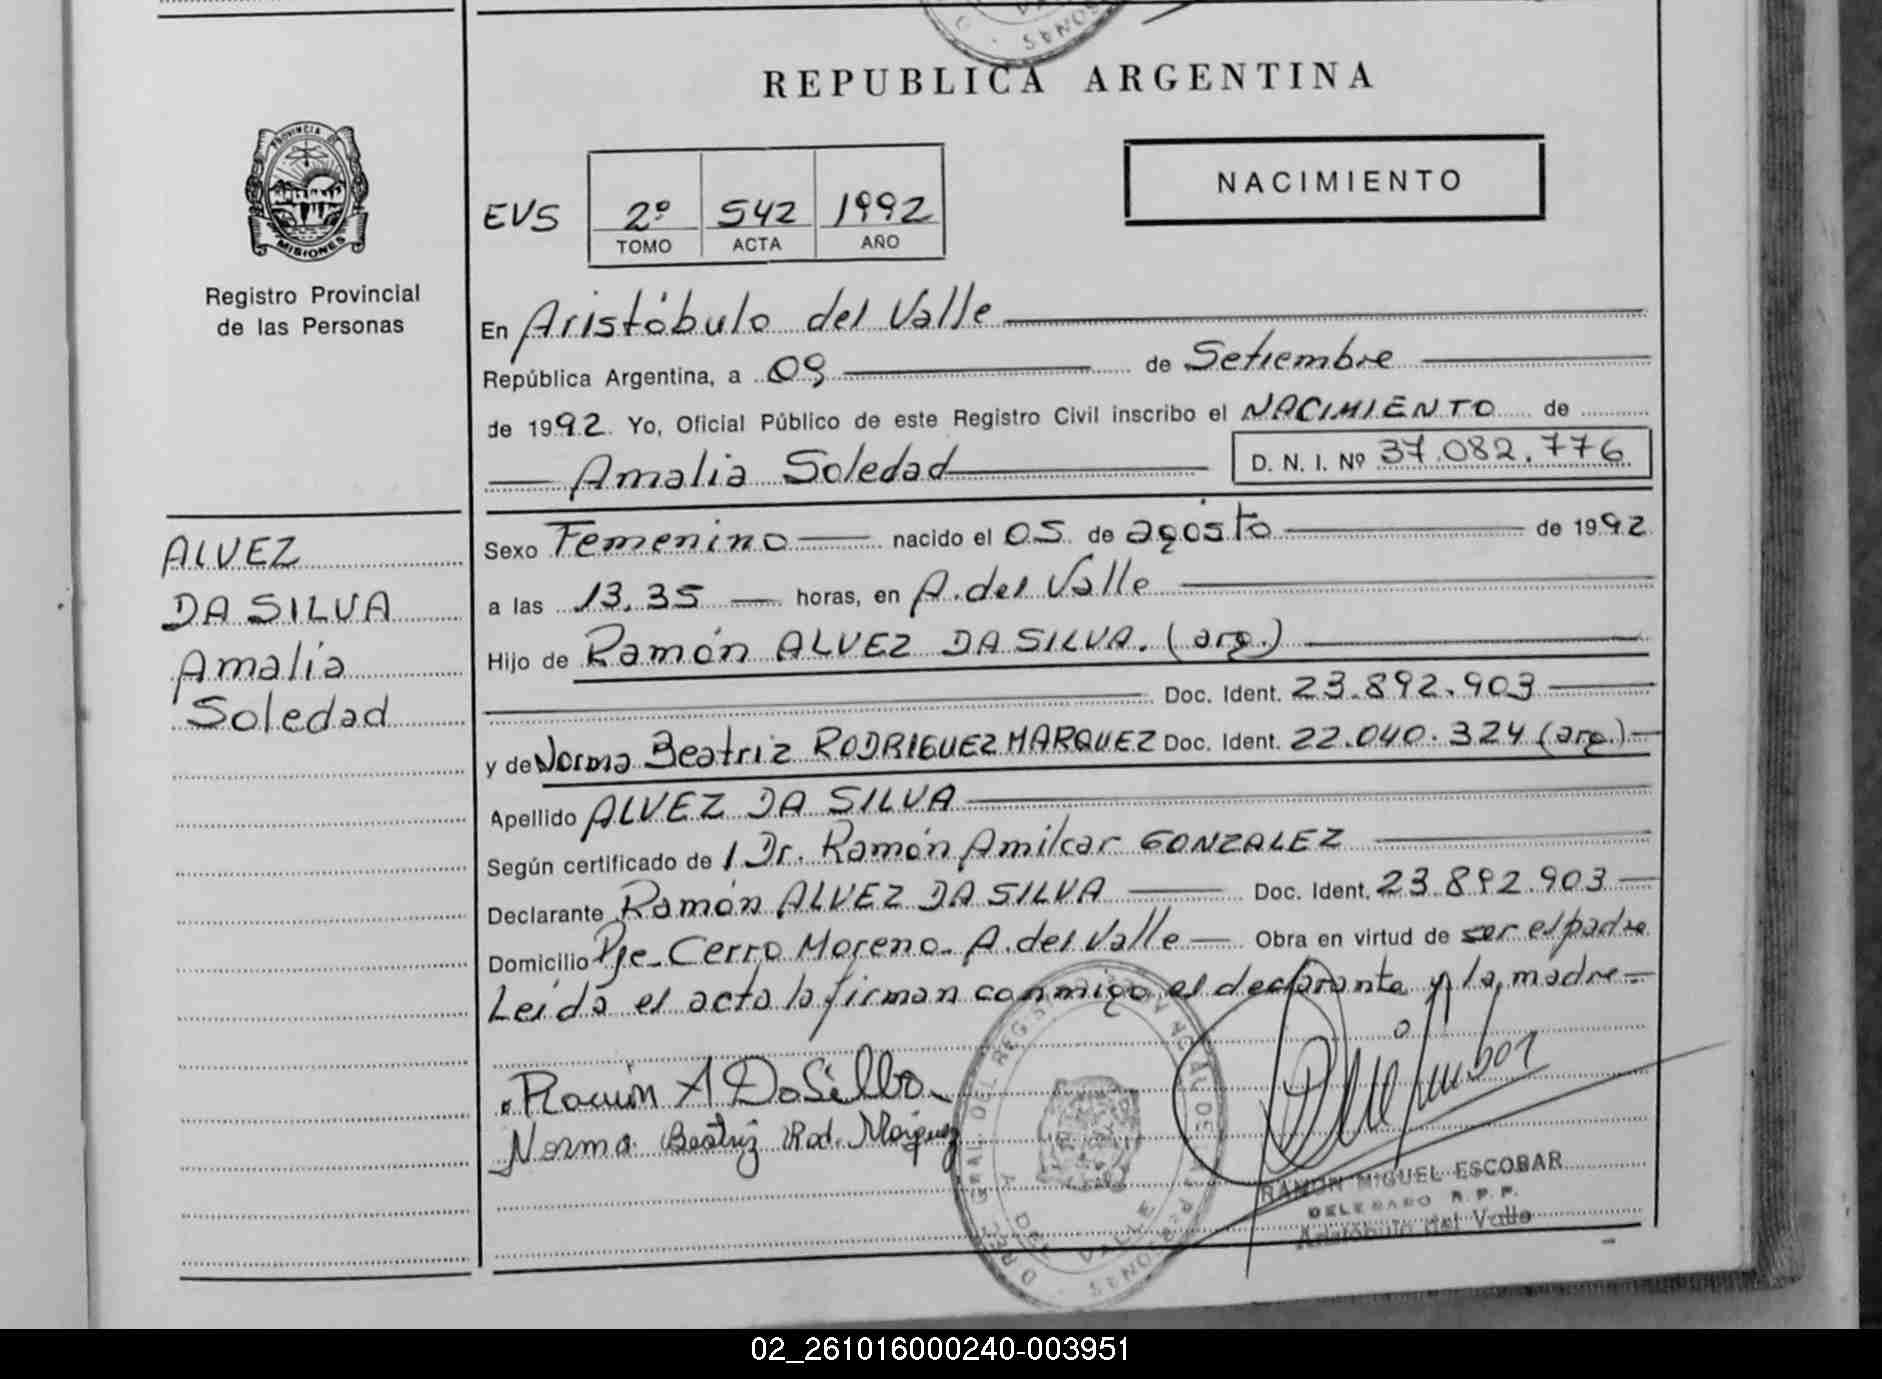 REPUBLICA ARGENTINA
PROVINCIA DE
MISIONES
Registro Provincial
de las Personas
EVS 2º 542 1992
TOMO ACTA AÑO
NACIMIENTO
En Aristóbulo del Valle
República Argentina, a 09 de Setiembre
de 1992. Yo, Oficial Público de este Registro Civil inscribo el NACIMIENTO de
Amalia Soledad D. N. I. Nº 37.082.776
ALVEZ
DA SILVA
Amalia
Soledad
Sexo Femenino nacido el 05 de agosto de 1992
a las 13.35 horas, en A. del Valle
Hijo de Ramón ALVEZ DA SILVA. (arg.)
Doc. Ident. 23.892.903
y de Norma Beatriz RODRIGUEZ MARQUEZ Doc. Ident. 22.040.324 (arg.)
Apellido ALVEZ DA SILVA
Según certificado de / Dr. Ramón Amilcar GONZALEZ
Declarante Ramón ALVEZ DA SILVA Doc. Ident. 23.892.903
Domicilio Pje. Cerro Moreno - A. del Valle Obra en virtud de ser el padre
Leída el acta la firman conmigo el declarante y la madre.
Ramón A DaSilva
Norma Beatriz Rod. Marquez
RAMON MIGUEL ESCOBAR
DELEGADO R. P. P.
Aristóbulo del Valle
02_261016000240-003951